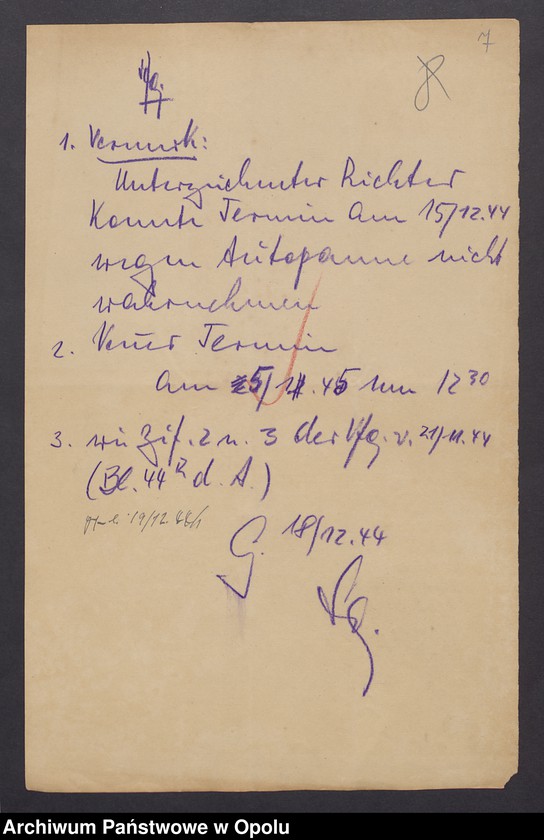 7
8
Vfg.
1. Vermerk:
Unterzeichneter Richter
konnte Termin am 15/12.44
wegen Autopanne nicht
wahrnehmen
2. Neuer Termin
am 5/1.45 um 12 30
3. wie Zif. 2 u. 3 der Vfg. v. 21/11.44
(Bl. 44 R d. A.)
19/12
G. 18/12.44
Archiwum Państwowe w Opolu